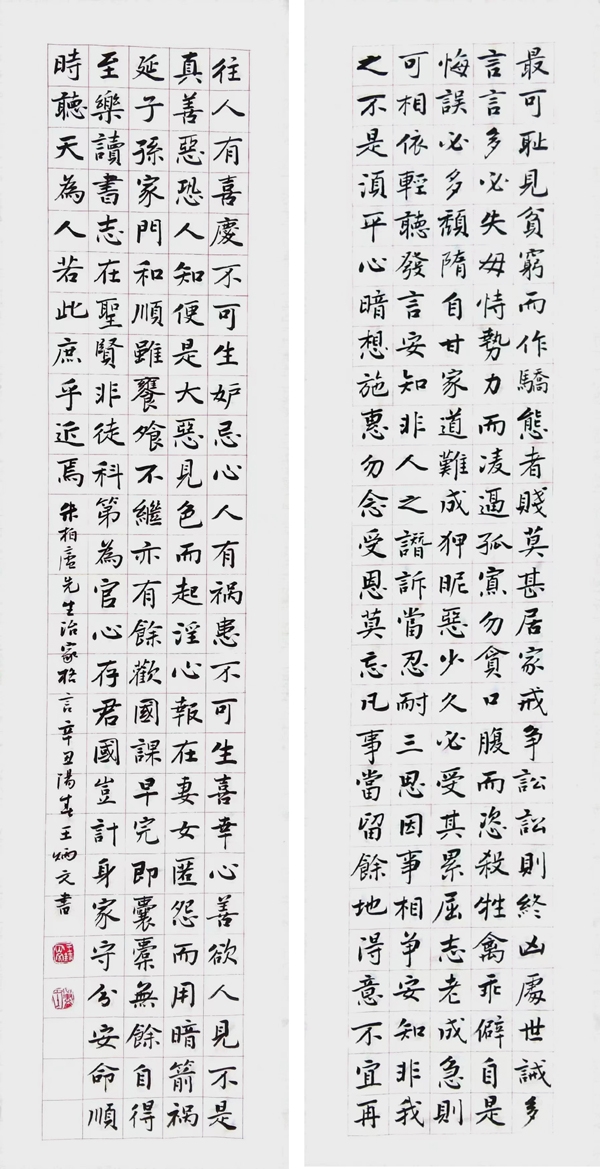 最可耻見貧窮而作驕態者賤莫甚居家戒争訟訟則終凶處世誡多
言言多必失毋恃勢力而凌逼孤寡勿貪口腹而恣殺牲禽乖僻自是
悔誤必多頹隋自甘家道難成狎昵惡少久必受其累屈志老成急則
可相依輕聽發言安知非人之譖訴當忍耐三思因事相争安知非我
之不是湏平心暗想施惠勿念受恩莫忘凡事當留餘地得意不宜再
往人有喜慶不可生妒忌心人有祸患不可生喜幸心善欲人見不是
真善惡恐人知便是大惡見色而起淫心報在妻女匿怨而用暗箭祸
延子孫家門和順雖饔飧不繼亦有餘歡國課早完即囊橐無餘自得
至樂讀書志在聖賢非徒科第為官心存君國豈計身家守分安命順
時聽天為人若此庶乎近焉 朱柏廬先生治家格言辛丑陽春王炳元書